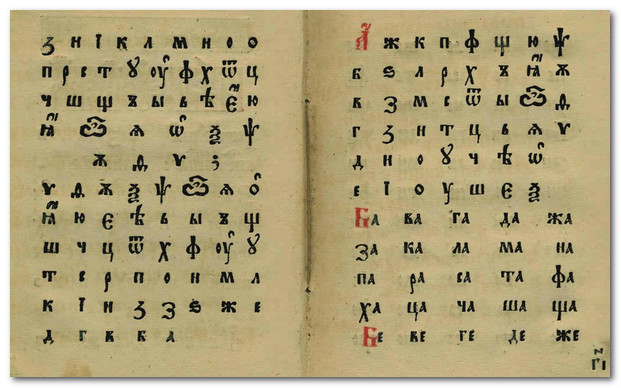 ꙁ и і к л м н о о
п р с т ꙋ оу ф х ѿ ц
ч ш щ ъ ы ь ѣ є ю
ꙗ ѽ ѧ ѡ ѯ ѱ
ѫ ѳ ѵ ;
ѵ ѳ ѫ ѯ ѱ ѽ ѧ ѡ
ꙗ ю є ѣ ь ы ъ щ
ш ч ц ѿ х ф оу ꙋ
т с р п о н м л
к і и ꙁ з ѕ ж е
д г в б а
А ж к п ф щ ю ѱ
б ѕ л р х ъ ꙗ ѫ
в з м с ѿ ы ѽ ѳ
г ꙁ н т ц ь ѧ ѵ
д и о ꙋ ч ѣ ѡ
е і о у ш є ѯ
Ба ва га да жа
за ка ла ма на
па ра са та фа
ха ца ча ша ща
Бе ве ге де же
гі